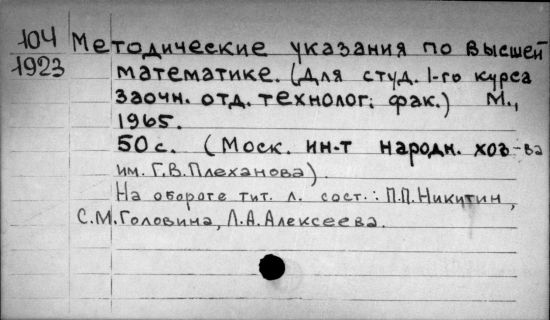 104 Методические указания по высшей
1923 математике. (Для студ. I-го курса
заочн. отд. технолог. фак.) М.,
1965.
50 с. (Моск. ин-т народн. хоз-ва
им. Г.В. Плеханова).
На обороте тит. л. сост.: П.П. Никитин,
С.М. Головина, Л.А. Алексеева.